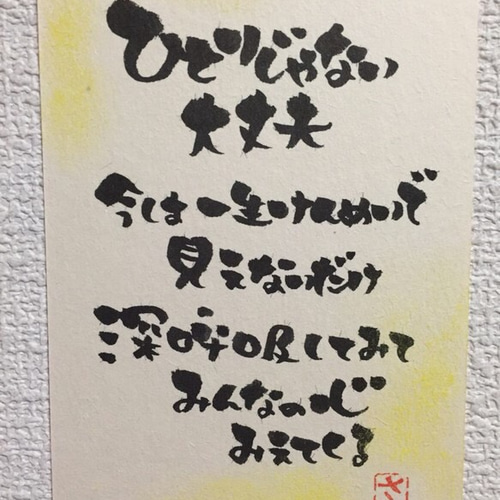 ひとりじゃない
大丈夫
今は一生けんめいで
見えないだけ
深呼吸してみて
みんなの心
みえてくる